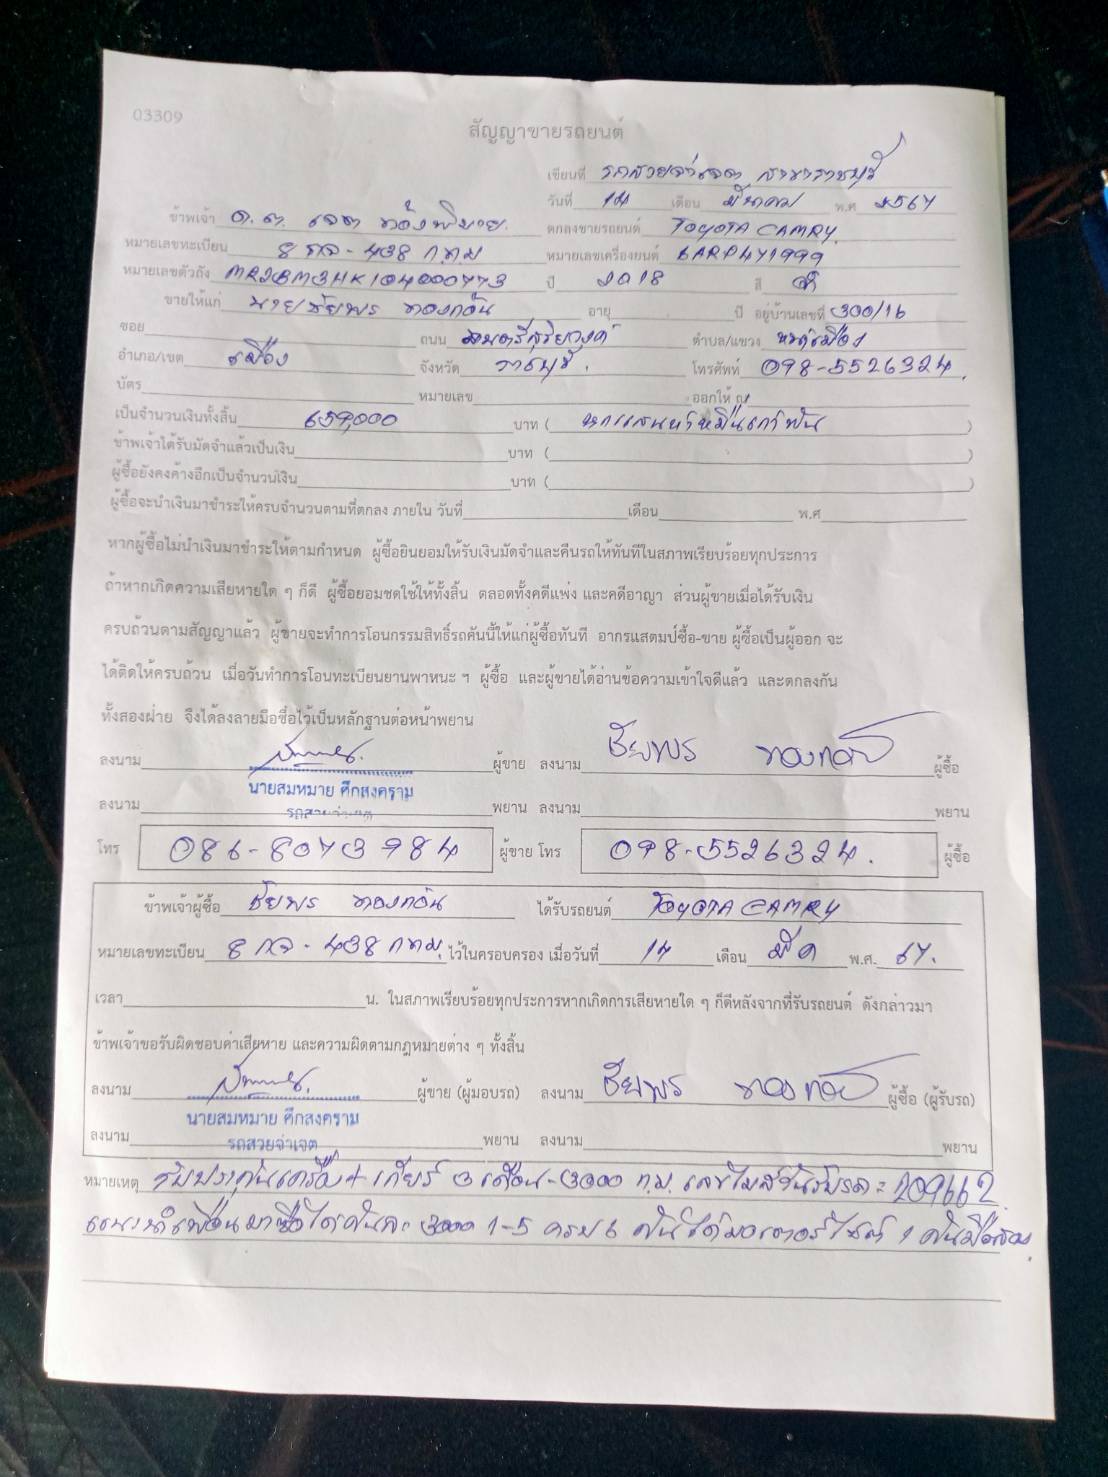 03309
สัญญาขายรถยนต์
เขียนที่ รถสวยจ่าเจต สาขาราชบุรี
วันที่ 14 เดือน มีนาคม พ.ศ 2567
ข้าพเจ้า ด.ต. เจต ตกลงขายรถยนต์ TOYOTA CAMRY
หมายเลขทะเบียน 8 กจ - 438 กทม หมายเลขเครื่องยนต์ 6ARP471999
หมายเลขตัวถัง ปี 2018 สี ดำ
ขายให้แก่ นายชัยพร ทองกวัน อายุ ปี อยู่บ้านเลขที่ 300/16
ซอย ถนน มนตรีสุริยวงค์ ตำบล/แขวง หน้าเมือง
อำเภอ/เขต เมือง จังหวัด ราชบุรี. โทรศัพท์ 098-5526324.
บัตร หมายเลข ออกให้ ณ
เป็นจำนวนเงินทั้งสิ้น 659,000 บาท ( หกแสนห้าหมื่นเก้าพัน )
ข้าพเจ้าได้รับมัดจำแล้วเป็นเงิน บาท ( )
ผู้ซื้อยังคงค้างอีกเป็นจำนวนเงิน บาท ( )
ผู้ซื้อจะนำเงินมาชำระให้ครบจำนวนตามที่ตกลง ภายใน วันที่ เดือน พ.ศ
หากผู้ซื้อไม่นำเงินมาชำระให้ตามกำหนด ผู้ซื้อยินยอมให้รับเงินมัดจำและคืนรถให้ทันทีในสภาพเรียบร้อยทุกประการ
ถ้าหากเกิดความเสียหายใด ๆ ก็ดี ผู้ซื้อยอมชดใช้ให้ทั้งสิ้น ตลอดทั้งคดีแพ่ง และคดีอาญา ส่วนผู้ขายเมื่อได้รับเงิน
ครบถ้วนตามสัญญาแล้ว ผู้ขายจะทำการโอนกรรมสิทธิ์รถคันนี้ให้แก่ผู้ซื้อทันที อากรแสตมป์ซื้อ-ขาย ผู้ซื้อเป็นผู้ออก จะ
ได้ติดให้ครบถ้วน เมื่อวันทำการโอนทะเบียนยานพาหนะ ฯ ผู้ซื้อ และผู้ขายได้อ่านข้อความเข้าใจดีแล้ว และตกลงกัน
ทั้งสองฝ่าย จึงได้ลงลายมือชื่อไว้เป็นหลักฐานต่อหน้าพยาน
ลงนาม ผู้ขาย ลงนาม ชัยพร ทองกวัน ผู้ซื้อ
นายสมหมาย ศึกสงคราม
ลงนาม รถสวยจ่าเจต พยาน ลงนาม พยาน
โทร 086-8073984 ผู้ขาย โทร 098-5526324. ผู้ซื้อ
ข้าพเจ้าผู้ซื้อ ชัยพร ทองกวัน ได้รับรถยนต์ TOYOTA CAMRY
หมายเลขทะเบียน 8 กจ - 438 กทม. ไว้ในครอบครอง เมื่อวันที่ 14 เดือน มีค พ.ศ. 67.
เวลา น. ในสภาพเรียบร้อยทุกประการหากเกิดการเสียหายใด ๆ ก็ดีหลังจากที่รับรถยนต์ ดังกล่าวมา
ข้าพเจ้าขอรับผิดชอบค่าเสียหาย และความผิดตามกฎหมายต่าง ๆ ทั้งสิ้น
ลงนาม ผู้ขาย (ผู้มอบรถ) ลงนาม ชัยพร ทองกวัน ผู้ซื้อ (ผู้รับรถ)
นายสมหมาย ศึกสงคราม
ลงนาม รถสวยจ่าเจต พยาน ลงนาม พยาน
หมายเหตุ รับประกันเครื่อง + เกียร์ 3 เดือน - 3000 ก.ม. เลขไมล์วันรับรถ = 209662
แนะนำเพื่อนมาซื้อได้คันละ 3000 1-5 ครบ 6 คันได้มอเตอร์ไซค์ 1 คันมือสอง.